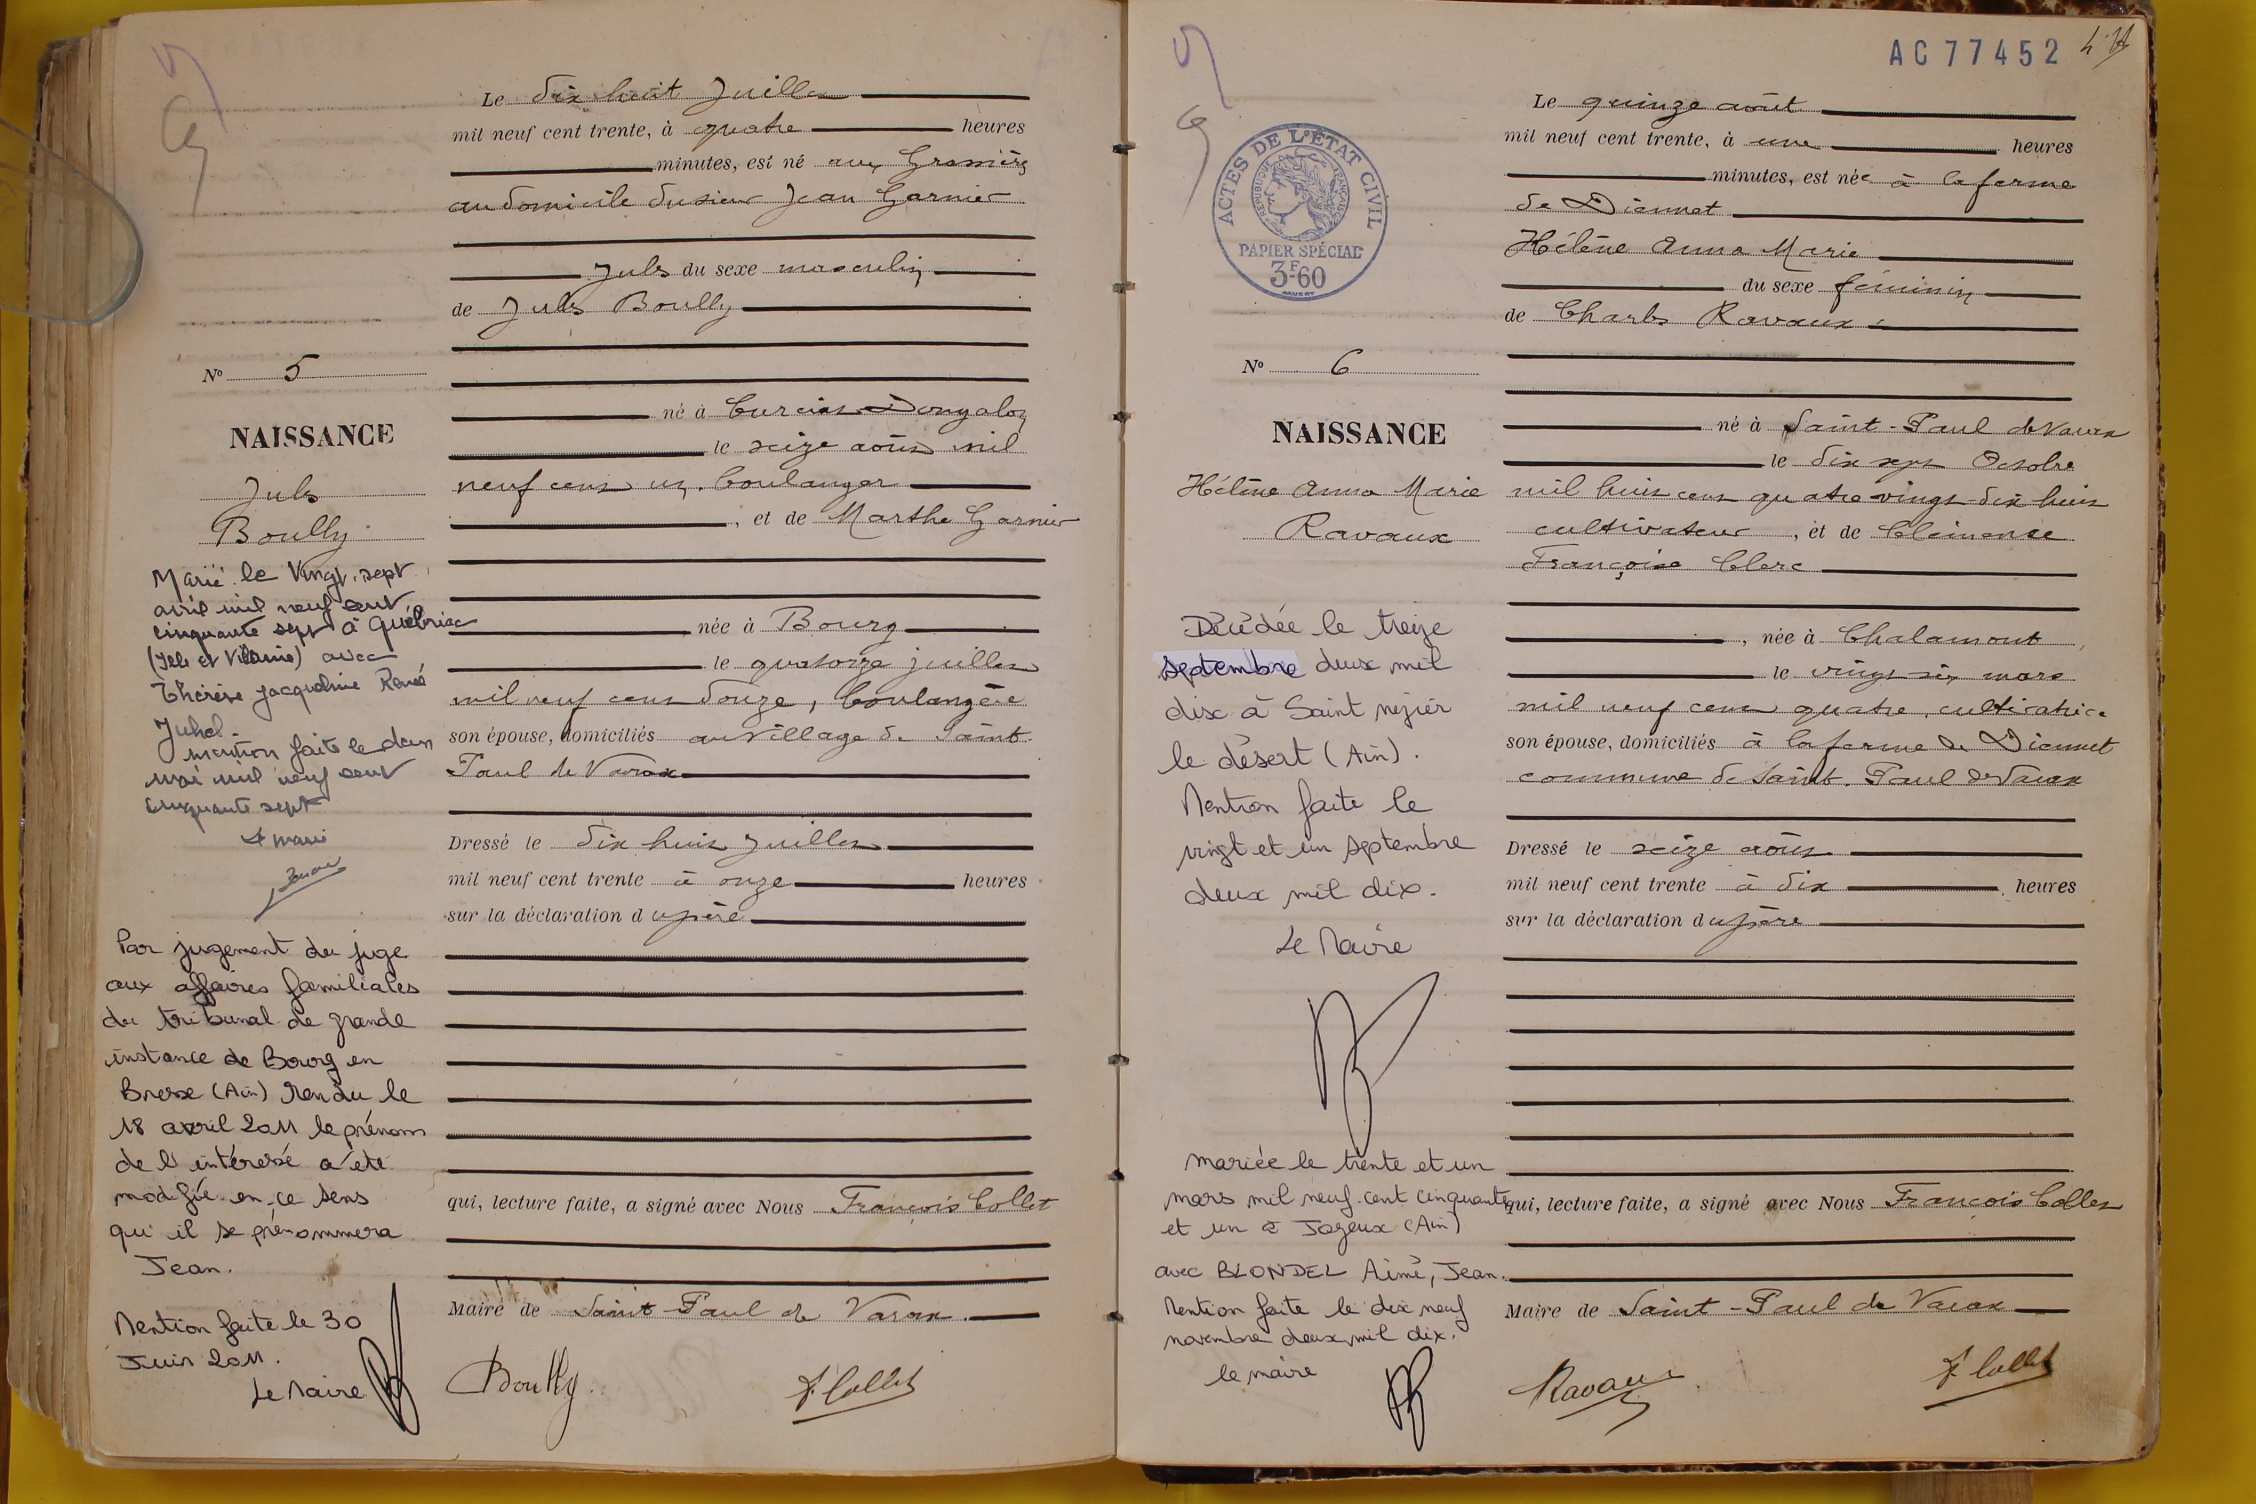 Le dix huit Juillet
mil neuf cent trente, à quatre heures
minutes, est né aux
au domicile du sieur Jean Garnier
Jules du sexe masculin
de Jules Boully
né à Curciat Dongalon
le seize août mil
neuf cent un, boulanger
, et de Marthe Garnier
née à Bourg
le quatorze juillet
mil neuf cent douze, boulangère
son épouse, domiciliés au village de Saint
Paul de Varax
Dressé le dix huit Juillet
mil neuf cent trente à onze heures
sur la déclaration du père
qui, lecture faite, a signé avec Nous François Collet
Maire de Saint-Paul de Varax.
Boully
F. Collet
No 5
NAISSANCE
Jules
Boully
Marié le Vingt-sept
avril mil neuf cent
cinquante sept à Québriac
(Ille et Vilaine) avec
Thérèse Jacqueline Renée
Juhel.
mention faite le deux
mai mil neuf cent
cinquante sept
Par jugement du juge
aux affaires familiales
du tribunal de grande
instance de Bourg en
Bresse (Ain) rendu le
18 avril 2011 le prénom
de l'intéressé a été
modifié en ce sens
qu'il se prénommera
Jean.
Mention faite le 30
Juin 2011.
Le Maire
AC 77452
ACTES DE L'ÉTAT CIVIL
RÉPUBLIQUE FRANÇAISE
PAPIER SPÉCIAL
3F60
Le quinze août
mil neuf cent trente, à une heures
minutes, est née à la ferme
de Diennet
Hélène Anna Marie
du sexe féminin
de Charles Ravaux
né à Saint-Paul de Varax
le dix sept Octobre
mil huit cent quatre vingt dix huit
cultivateur, et de Clémence
Françoise Clerc
, née à Chalamont
le vingt six mars
mil neuf cent quatre, cultivatrice
son épouse, domiciliés à la ferme de Diennet
commune de Saint-Paul de Varax
Dressé le seize août
mil neuf cent trente à dix heures
sur la déclaration du père
qui, lecture faite, a signé avec Nous François Collet
Maire de Saint-Paul de Varax
Ravaux
F. Collet
No 6
NAISSANCE
Hélène Anna Marie
Ravaux
Décédée le treize
septembre deux mil
dix à Saint Nizier
le désert (Ain).
Mention faite le
vingt et un septembre
deux mil dix.
Le Maire
mariée le trente et un
mars mil neuf cent cinquante
et un à Joyeux (Ain)
avec BLONDEL Aimé, Jean.
Mention faite le dix neuf
novembre deux mil dix.
le maire